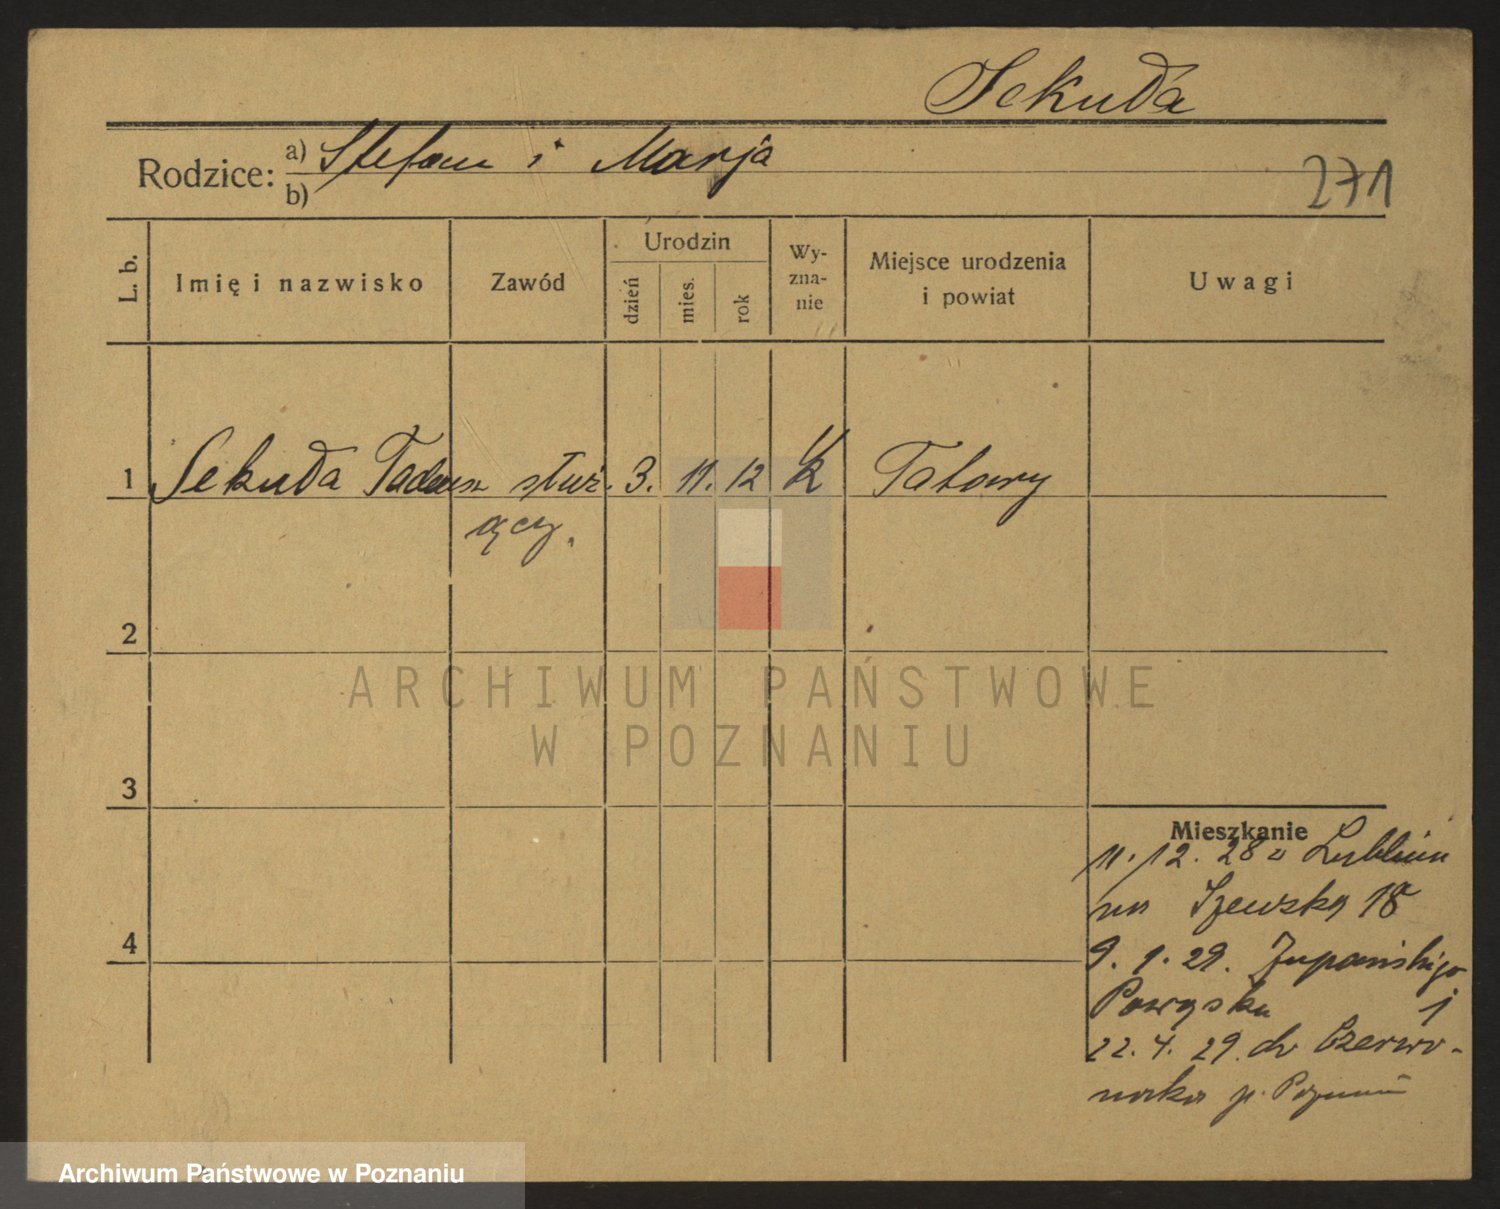 Sekuda
Rodzice: a) Stefan i Marja
b)
271
L. b.
Imię i nazwisko
Zawód
Urodzin
dzień
mies.
rok
Wy-
zna-
nie
Miejsce urodzenia
i powiat
Uwagi
1 Sekuda Tadeusz służ- 3. 11. 12 k Tatowy
ący.
2
3
4
Mieszkanie
11. 12. 28 z Lublina
na Szewska 18
9. 1. 29. Żupańskiego
1
22. 4. 29. do Czerwo-
naka p. Poznań
ARCHIWUM PAŃSTWOWE
W POZNANIU
Archiwum Państwowe w Poznaniu